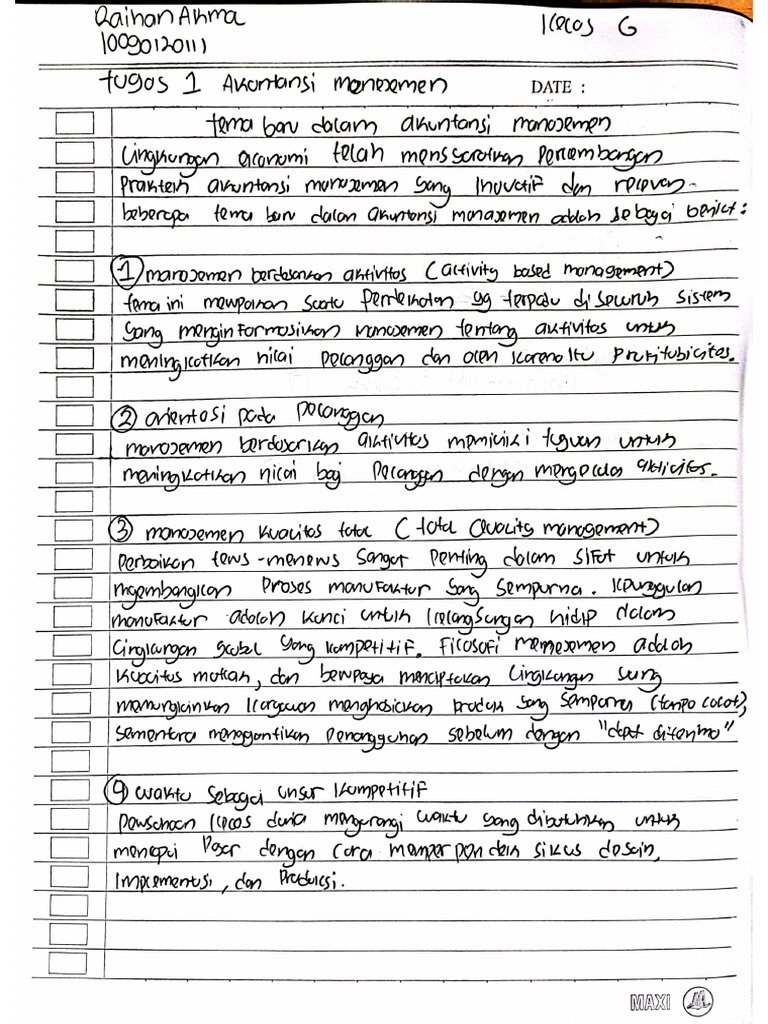 Raihan Akma
Kelas G
10090120111
Tugas 1 Akuntansi manajemen
DATE :
tema baru dalam akuntansi manajemen
Lingkungan ekonomi telah mensyaratkan Perkembangan
Praktek akuntansi manajemen yang Inovatif dan relevan.
beberapa tema baru dalam akuntansi manajemen adalah sebagai berikut :
1 manajemen berdasarkan aktivitas (activity based management)
tema ini merupakan suatu Pendekatan yg terpadu di seluruh sistem
yang menginformasikan manajemen tentang aktivitas untuk
meningkatkan nilai Pelanggan dan oleh karena itu Profitubilitas.
2 orientasi pada pelanggan
manajemen berdasarkan aktivitas memiliki tujuan untuk
meningkatkan nilai bagi Pelanggan dengan mengelola aktivitas.
3 manajemen kualitas total (total Quality management)
Perbaikan terus-menerus sangat penting dalam sifat untuk
mgembangkan Proses manufaktur yang sempurna. Keunggulan
manufaktur adalah kunci untuk kelangsungan hidip dalam
Lingkungan global yang kompetitif. Filosofi memejemen adalah
kualitas mutlak, dan berupaya menciptakan Lingkungan yang
memungkinkan karyawan menghasilkan Produk yang sempurna (tanpa cacat),
sementara menggantikan Penanggunan sebelum dengan "dapat diterima"
4 waktu sebagai unsur kompetitif
Perusahaan kelas dunia mengurangi waktu yang dibutuhkan untuk
mencapai Pasar dengan Cara memperpendek siklus desain,
Implementasi, dan Produksi.
MAXI